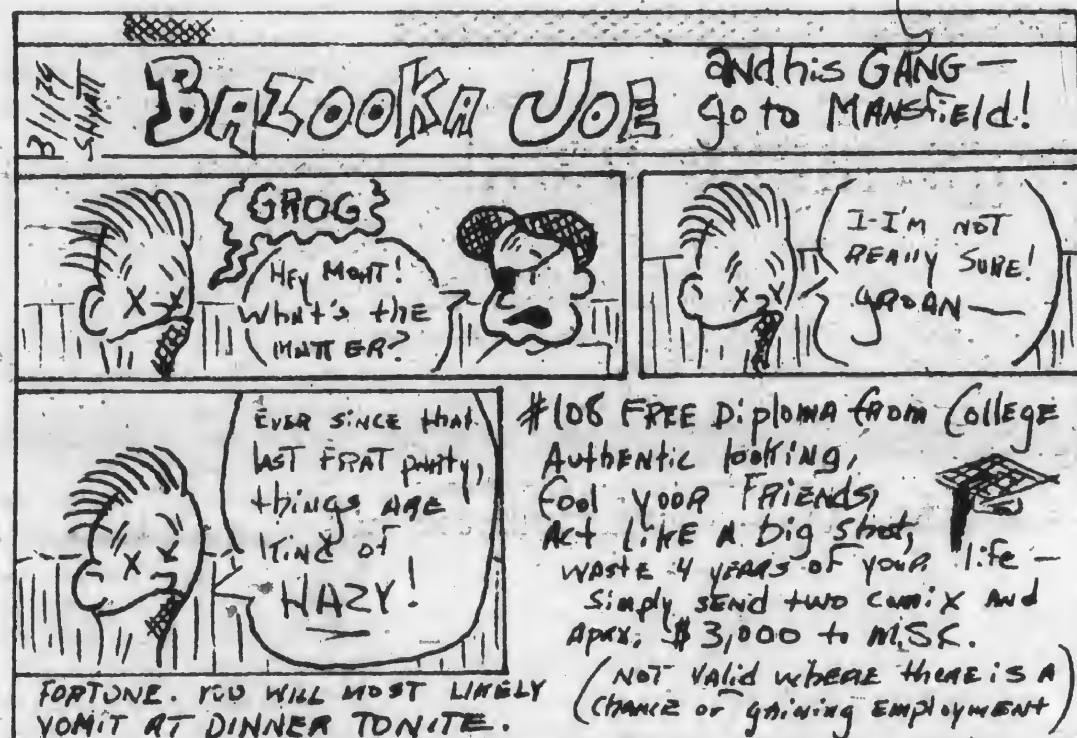 3/1/79
BAZOOKA JOE
and his GANG —
go to MANSFIELD!
GROG
HEY MORT!
WHAT'S THE
MATTER?
I-I'M NOT
REALLY SURE!
GROAN —
EVER SINCE THAT
LAST FRAT PARTY,
THINGS ARE
KIND OF
HAZY!
#108 FREE Diploma from College
Authentic looking,
fool yoor FRIENDS,
Act LIKE A big shot,
WASTE 4 YEARS OF YOUR life —
Simply SEND two comix AND
Apax. $3,000 to M.S.C.
(NOT VALID WHERE there is A
CHANCE or gaining EMPLOYMENT)
FORTUNE. YOU WILL MOST LIKELY
VOMIT AT DINNER TONITE.